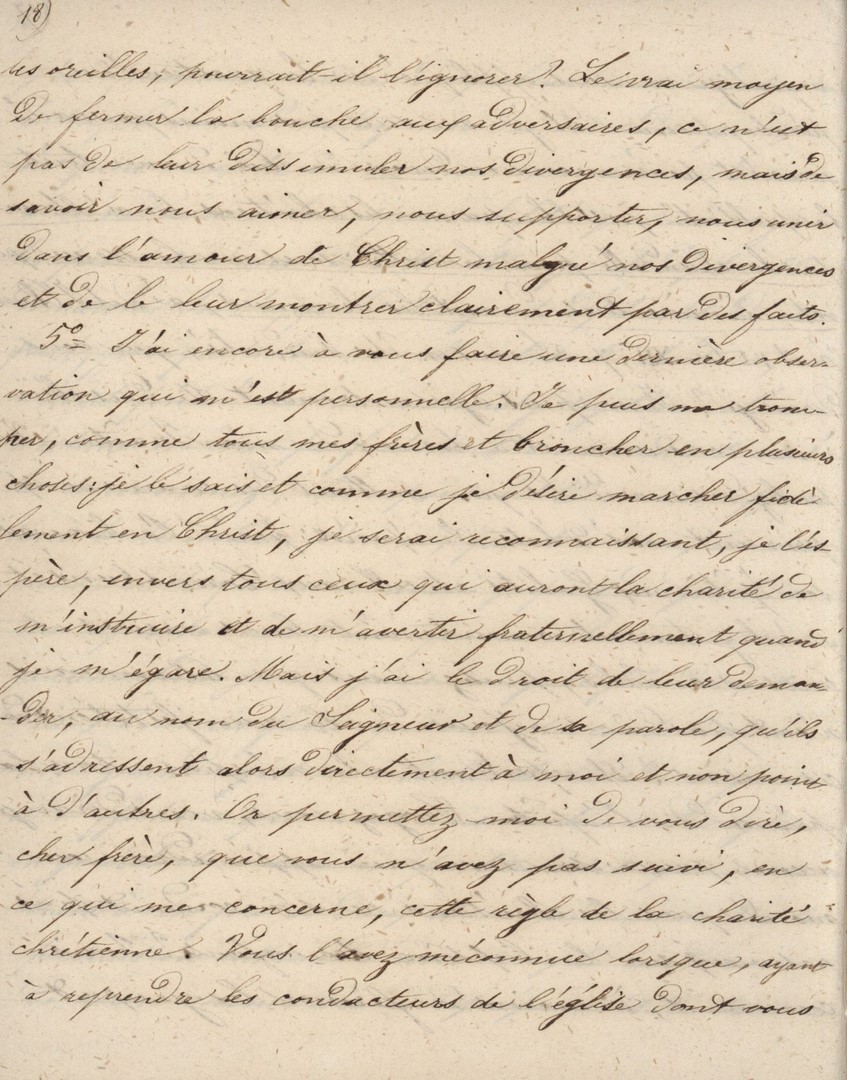 18)
les oreilles, pourrait-il l'ignorer? Le vrai moyen
de fermer la bouche aux adversaires, ce n'est
pas de leur dissimuler nos divergences, mais de
savoir nous aimer, nous supporter, nous unir
dans l'amour de Christ malgré nos divergences
et de le leur montrer clairement par des faits.
5º= J'ai encore à vous faire une dernière obser-
vation qui m'est personnelle. Je puis me trom-
per, comme tous mes frères et broncher en plusieurs
choses; je le sais et comme je désire marcher fidè
lement en Christ, je serai reconnaissant, je l'es
père, envers tous ceux qui auront la charité de
m'instruire et de m'avertir fraternellement quand
je m'égare. Mais j'ai le droit de leur deman-
-der, au nom du Seigneur et de sa parole, qu'ils
s'adressent alors directement à moi et non point
à d'autres. Or permettez moi de vous dire,
cher frère, que vous n'avez pas suivi, en
ce qui me concerne, cette règle de la charité
chrétienne. Vous l'avez méconnue lorsque, ayant
à reprendre les conducteurs de l'église dont vous